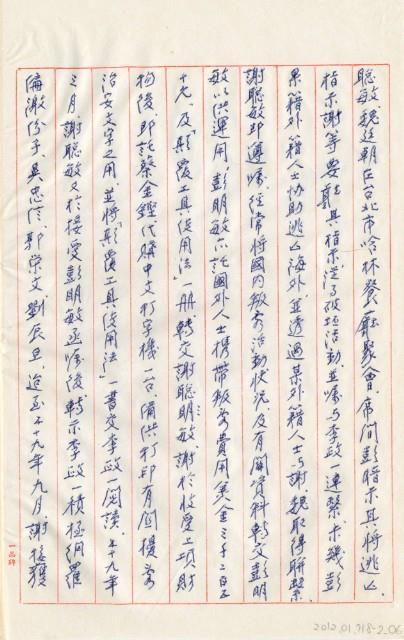 聰敏、魏廷朝在台北市哈林餐廳聚會，席間彭暗示其將逃亡，
指示謝等要聽其指示從事破壞活動，並囑與李政一連繫，未幾彭
果籍外籍人士協助逃亡海外，並透過某外籍人士與謝、魏取得聯繫，
謝聰敏即遵囑，經常將國內叛亂活動狀況及有關資料轉交彭明
敏以供運用，彭明敏亦託國外人士携帶叛亂費用美金三千二百五
十元，及「顛覆工具使用法」一冊，轉交謝聰敏，謝於收受上項財
物後，即託蔡金鏗代購中文打字機一台，備供打印有關擾亂
治安文字之用，並將「顛覆工具使用法」一書交李政一閱讀，五十九年
三月，謝聰敏又於接受彭明敏函囑後，轉示李政一積極網羅
偏激份子，吳忠信、郭榮文、劉辰旦，迨至五十九年九月，謝接獲
一品牌
2012.01.718-2.06